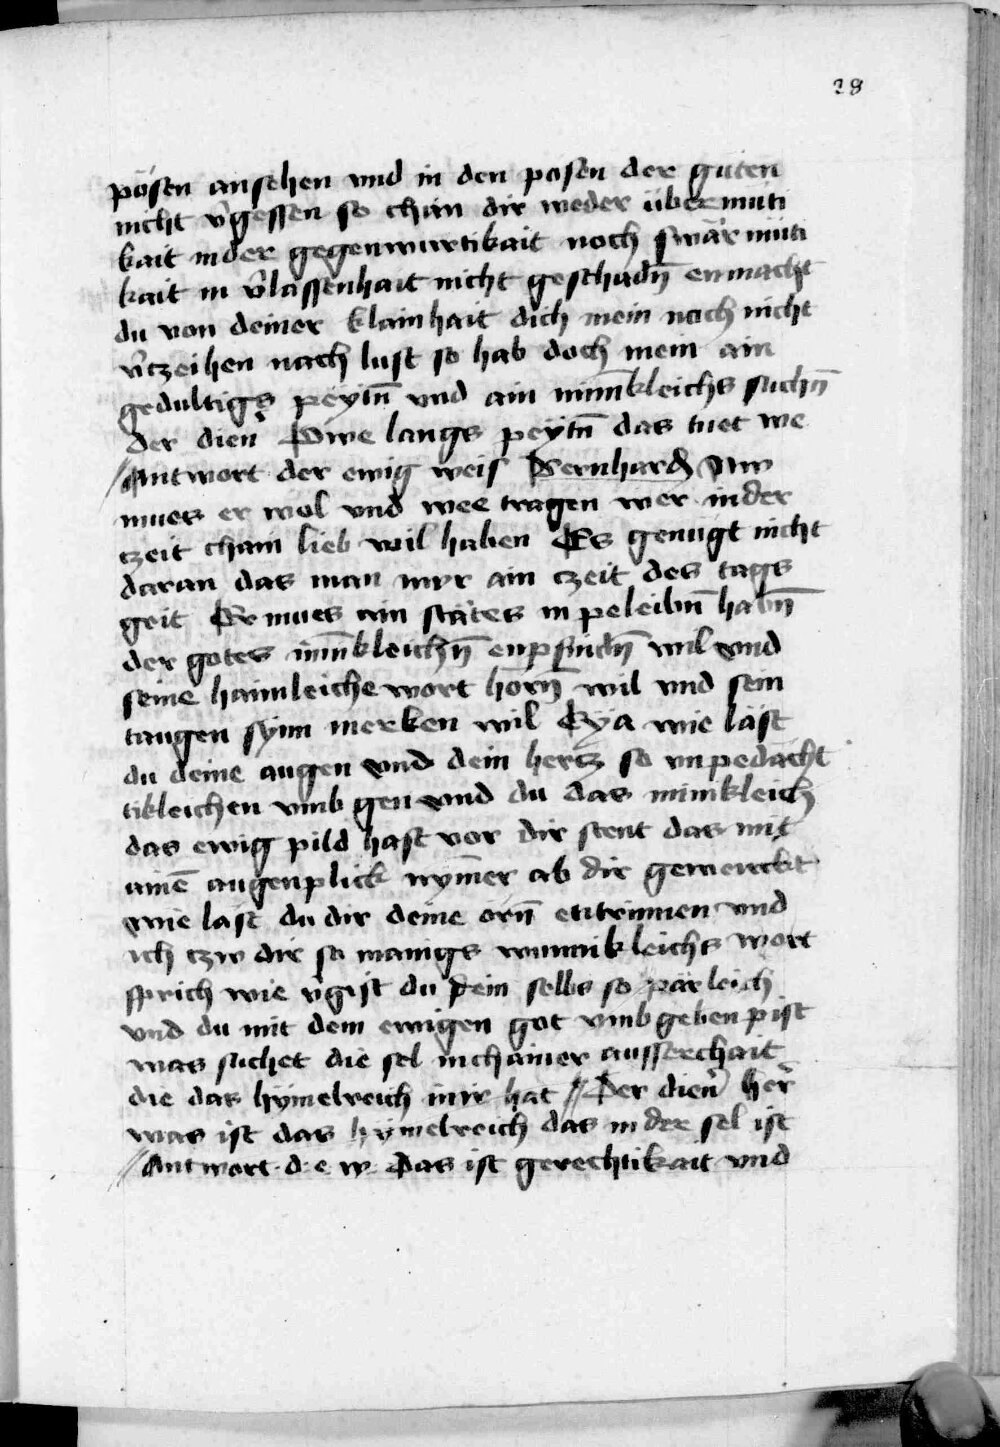 28
pösen ansehen vnd in den posen der guten
nicht v̉gessen so chan dir weder übermuti
kait inder gegenwurtikait noch swärmüti
kait in v̉lassenhait nicht geschadn̄ enmacht
du von deiner klainhait dich mein noch nicht
v̉tzeihen nach lust so hab doch mein ain
gedultigs peytn̄ vnd ain min̄kleichs suchn̄
der dien̉ Owe langs peytn̄ das tuet we
Antwort der ewig weis Bernhard Nw
mues er wol vnd wee tragen wer inder
tzeit chain lieb wil haben Es genugt nicht
daran das man myr ain tzeit des tags
geit Er mues ain stätes inpeleibn̄ habn̄
der gotes min̄kleichn̄ enpfindn̄ wil vnd
seine haimleiche wort horn̄ wil vnd sein
taugen synn merken wil Eya wie läst
du deine augen vnd dein hertz so vnpedächt
tikleichen vmb gen vnd du das minnikleich
das ewig pild hast vor dir stent das mit
ainē augenplick nym̄er ab dir gewenckt
wie last du dir deine orn̄ entrinnen vnd
ich tzw dir so manigs wunnikleichs wort
sprich wie v̉gist du dein selbs so pärleich
vnd du mit dem ewigen got vmbgeben pist
was suchet die sel inchainer ausserchait
die das hymelreich in ir hat Der dien̉ her̉
was ist das hymelreich das in der sel ist
Antwort d e w Das ist gerechtikait vnd